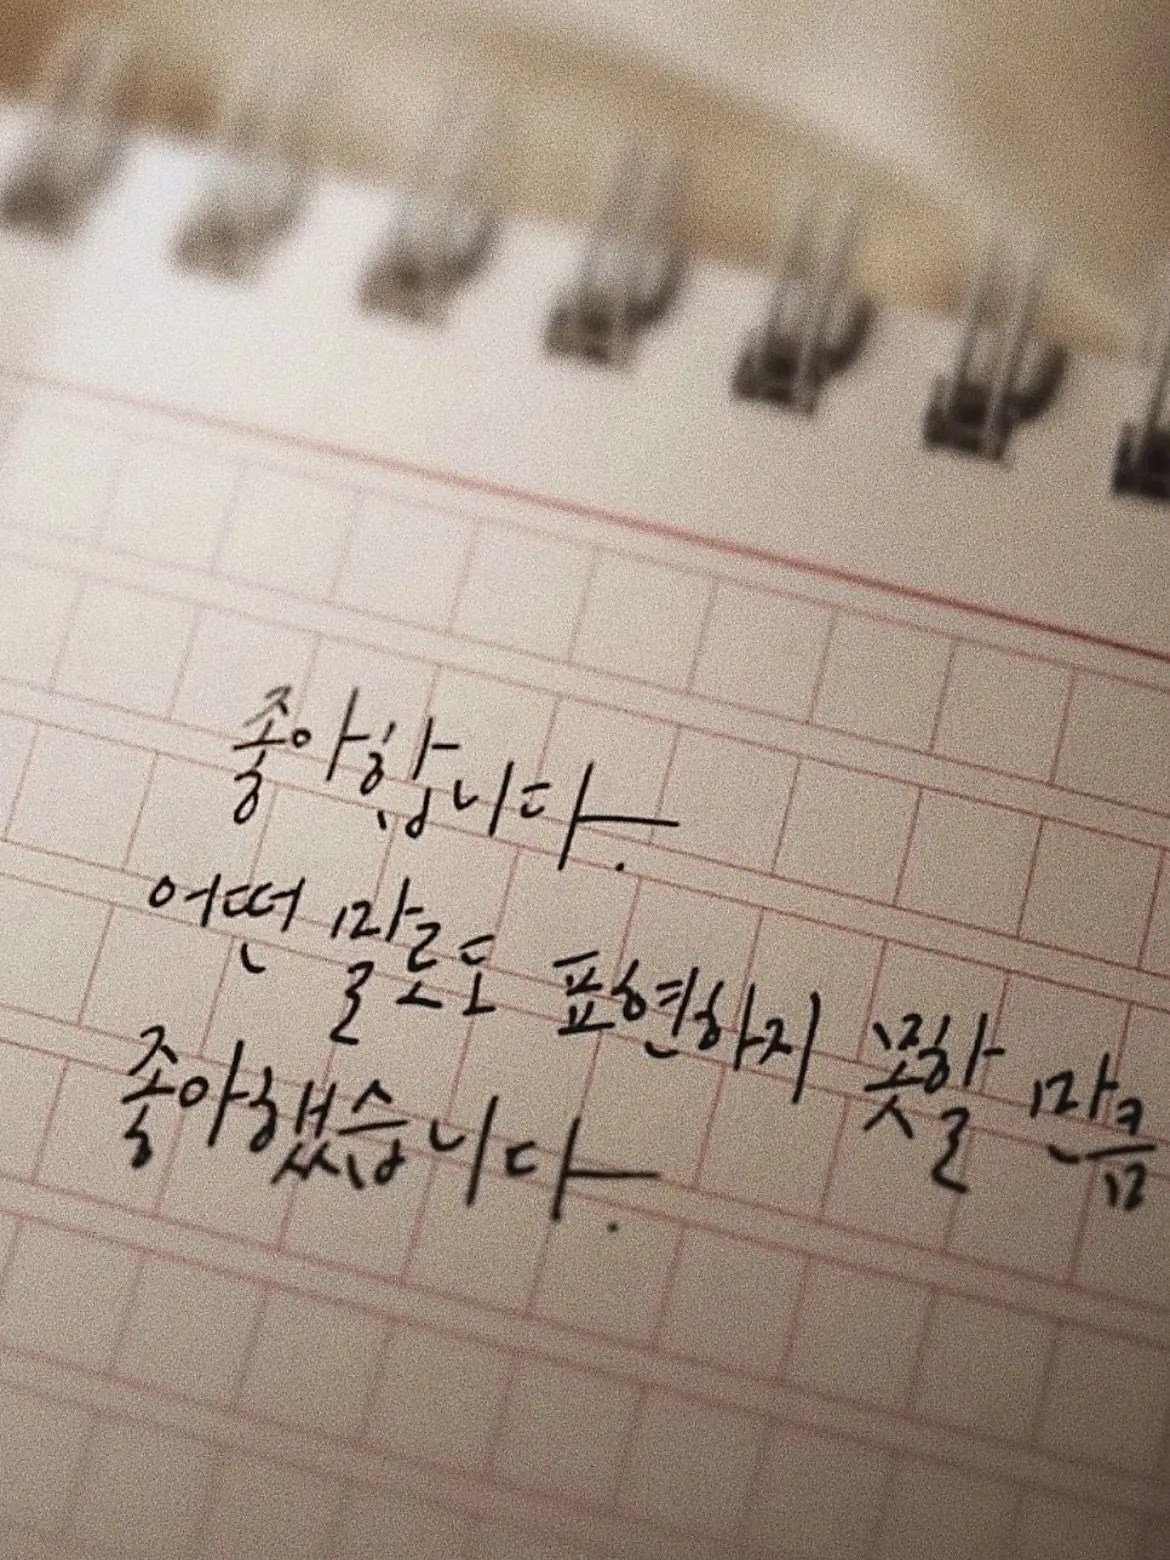 종아합니다.
어떤 말로도 표현하지 못할 만큼
종아했습니다.